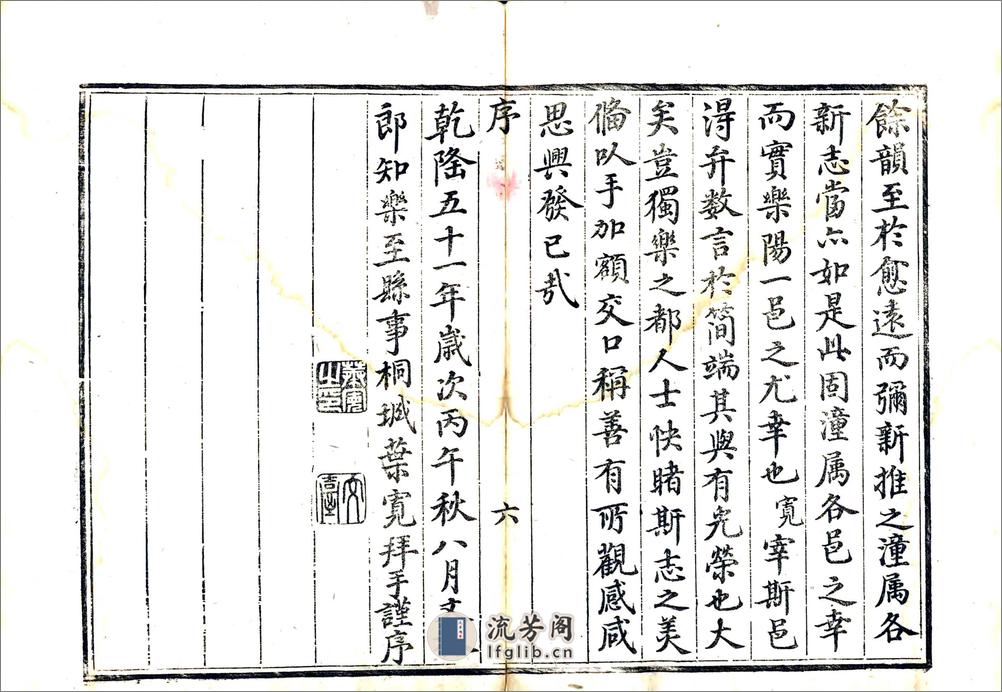 餘韻至於愈遠而彌新推之潼属各
新志當亦如是此固潼属各邑之幸
而實樂陽一邑之尤幸也寛宰斯邑
得弁数言於簡端其與有光榮也大
矣豈獨樂之都人士快睹斯志之美
俻以手加額交口稱善有所觀感咸
思興發已㢤
序
六
乾隆五十一年歲次丙午秋八月文
郎知樂至縣事桐城葉寛拜手謹序
葉寛之印
文
流芳阁
lfglib.com